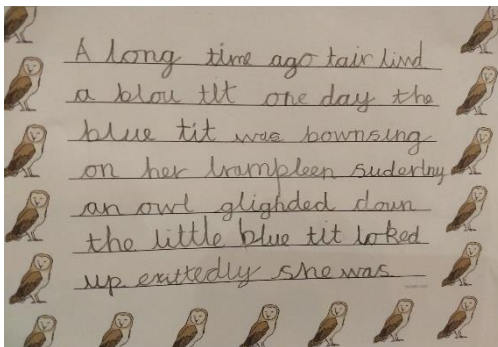 A long time ago tair lind
a blou tit one day the
blue tit was bownsing
on her trampleen suderlny
an owl glighded down
the little blue tit loked
up exittedly she was